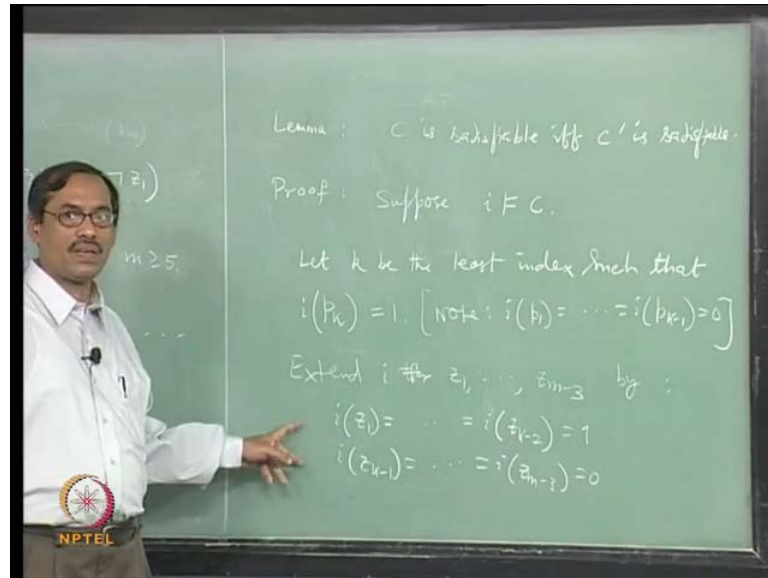 (p₁₁)
¬ z₁)
m ≥ 5,
. . .
Lemma : C is satisfiable iff C' is satisfiable.
Proof : Suppose i ⊨ C.
Let k be the least index such that
i(p_k) = 1. [Note: i(p₁) = ··· = i(p_{k-1}) = 0]
Extend i z₁, ···, z_{m-3} by :
i(z₁) = ··· = i(z_{k-2}) = 1
i(z_{k-1}) = ··· = i(z_{m-3}) = 0
NPTEL